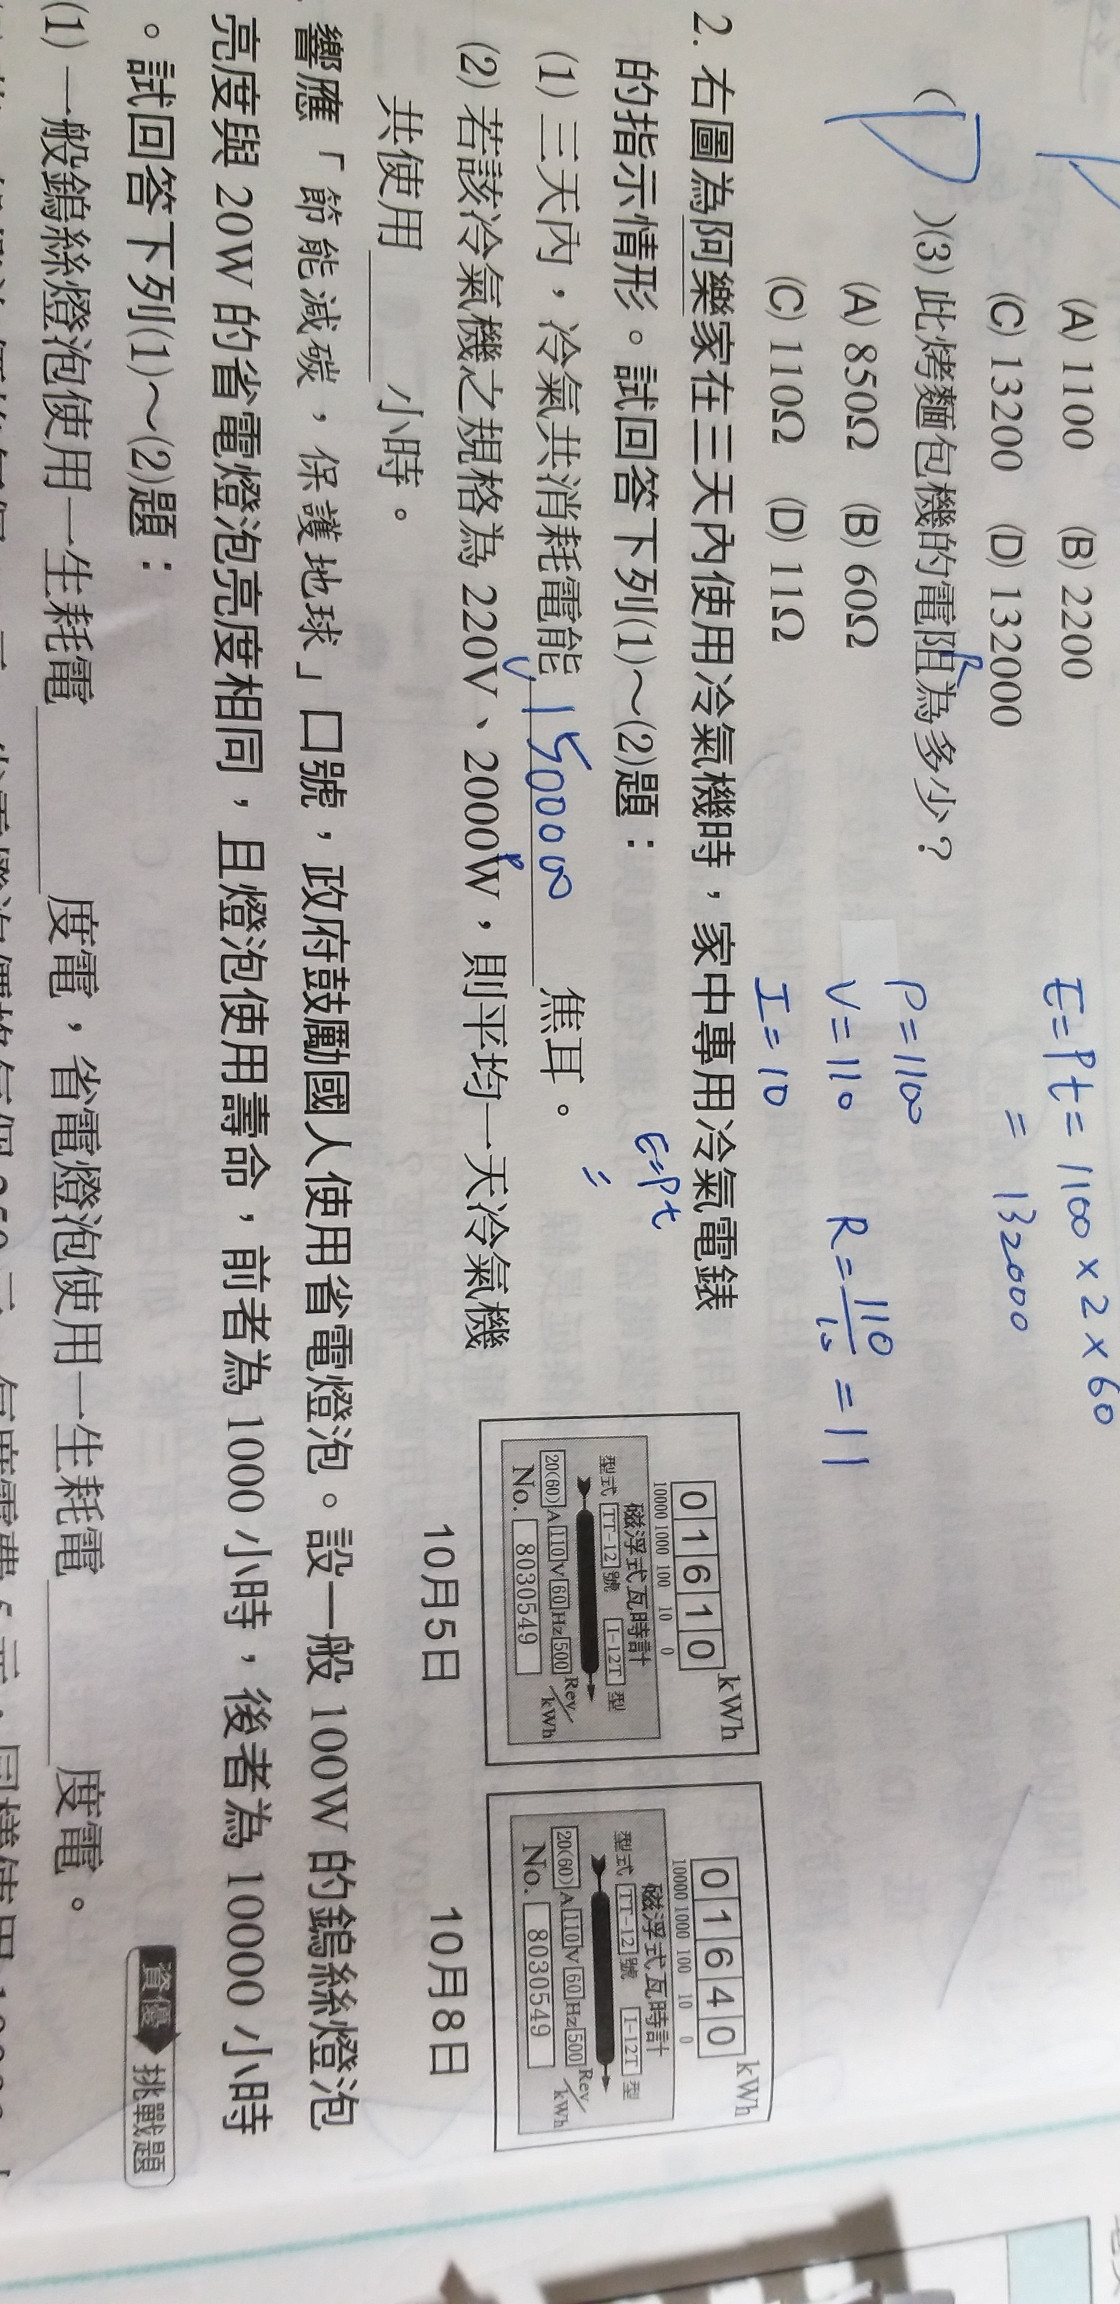 (A) 1100 (B) 2200
(C) 13200 (D) 132000
E=Pt= 1100 × 2 × 60
= 132000
( D )(3) 此烤麵包機的電阻為多少？
R
(A) 850Ω (B) 60Ω
(C) 110Ω (D) 11Ω
P=1100
V=110 R=110/10 = 11
I=10
2. 右圖為阿樂家在三天內使用冷氣機時，家中專用冷氣電錶
的指示情形。試回答下列(1)～(2)題：
E=Pt
=
(1) 三天內，冷氣共消耗電能 150000 焦耳。
(2) 若該冷氣機之規格為 220V、2000W，則平均一天冷氣機
V P
共使用____小時。
01610 kWh
10000 1000 100 10 0
磁浮式瓦時計
型式 TT-12 號 I-12T 型
20(60) A 110 V 60 Hz 500 Rev/kWh
No. 8030549
10月5日
01640 kWh
10000 1000 100 10 0
磁浮式瓦時計
型式 TT-12 號 I-12T 型
20(60) A 110 V 60 Hz 500 Rev/kWh
No. 8030549
10月8日
響應「節能減碳，保護地球」口號，政府鼓勵國人使用省電燈泡。設一般 100W 的鎢絲燈泡
亮度與 20W 的省電燈泡亮度相同，且燈泡使用壽命，前者為 1000 小時，後者為 10000 小時
。試回答下列(1)～(2)題：
資優 挑戰題
(1) 一般鎢絲燈泡使用一生耗電______度電，省電燈泡使用一生耗電______度電。